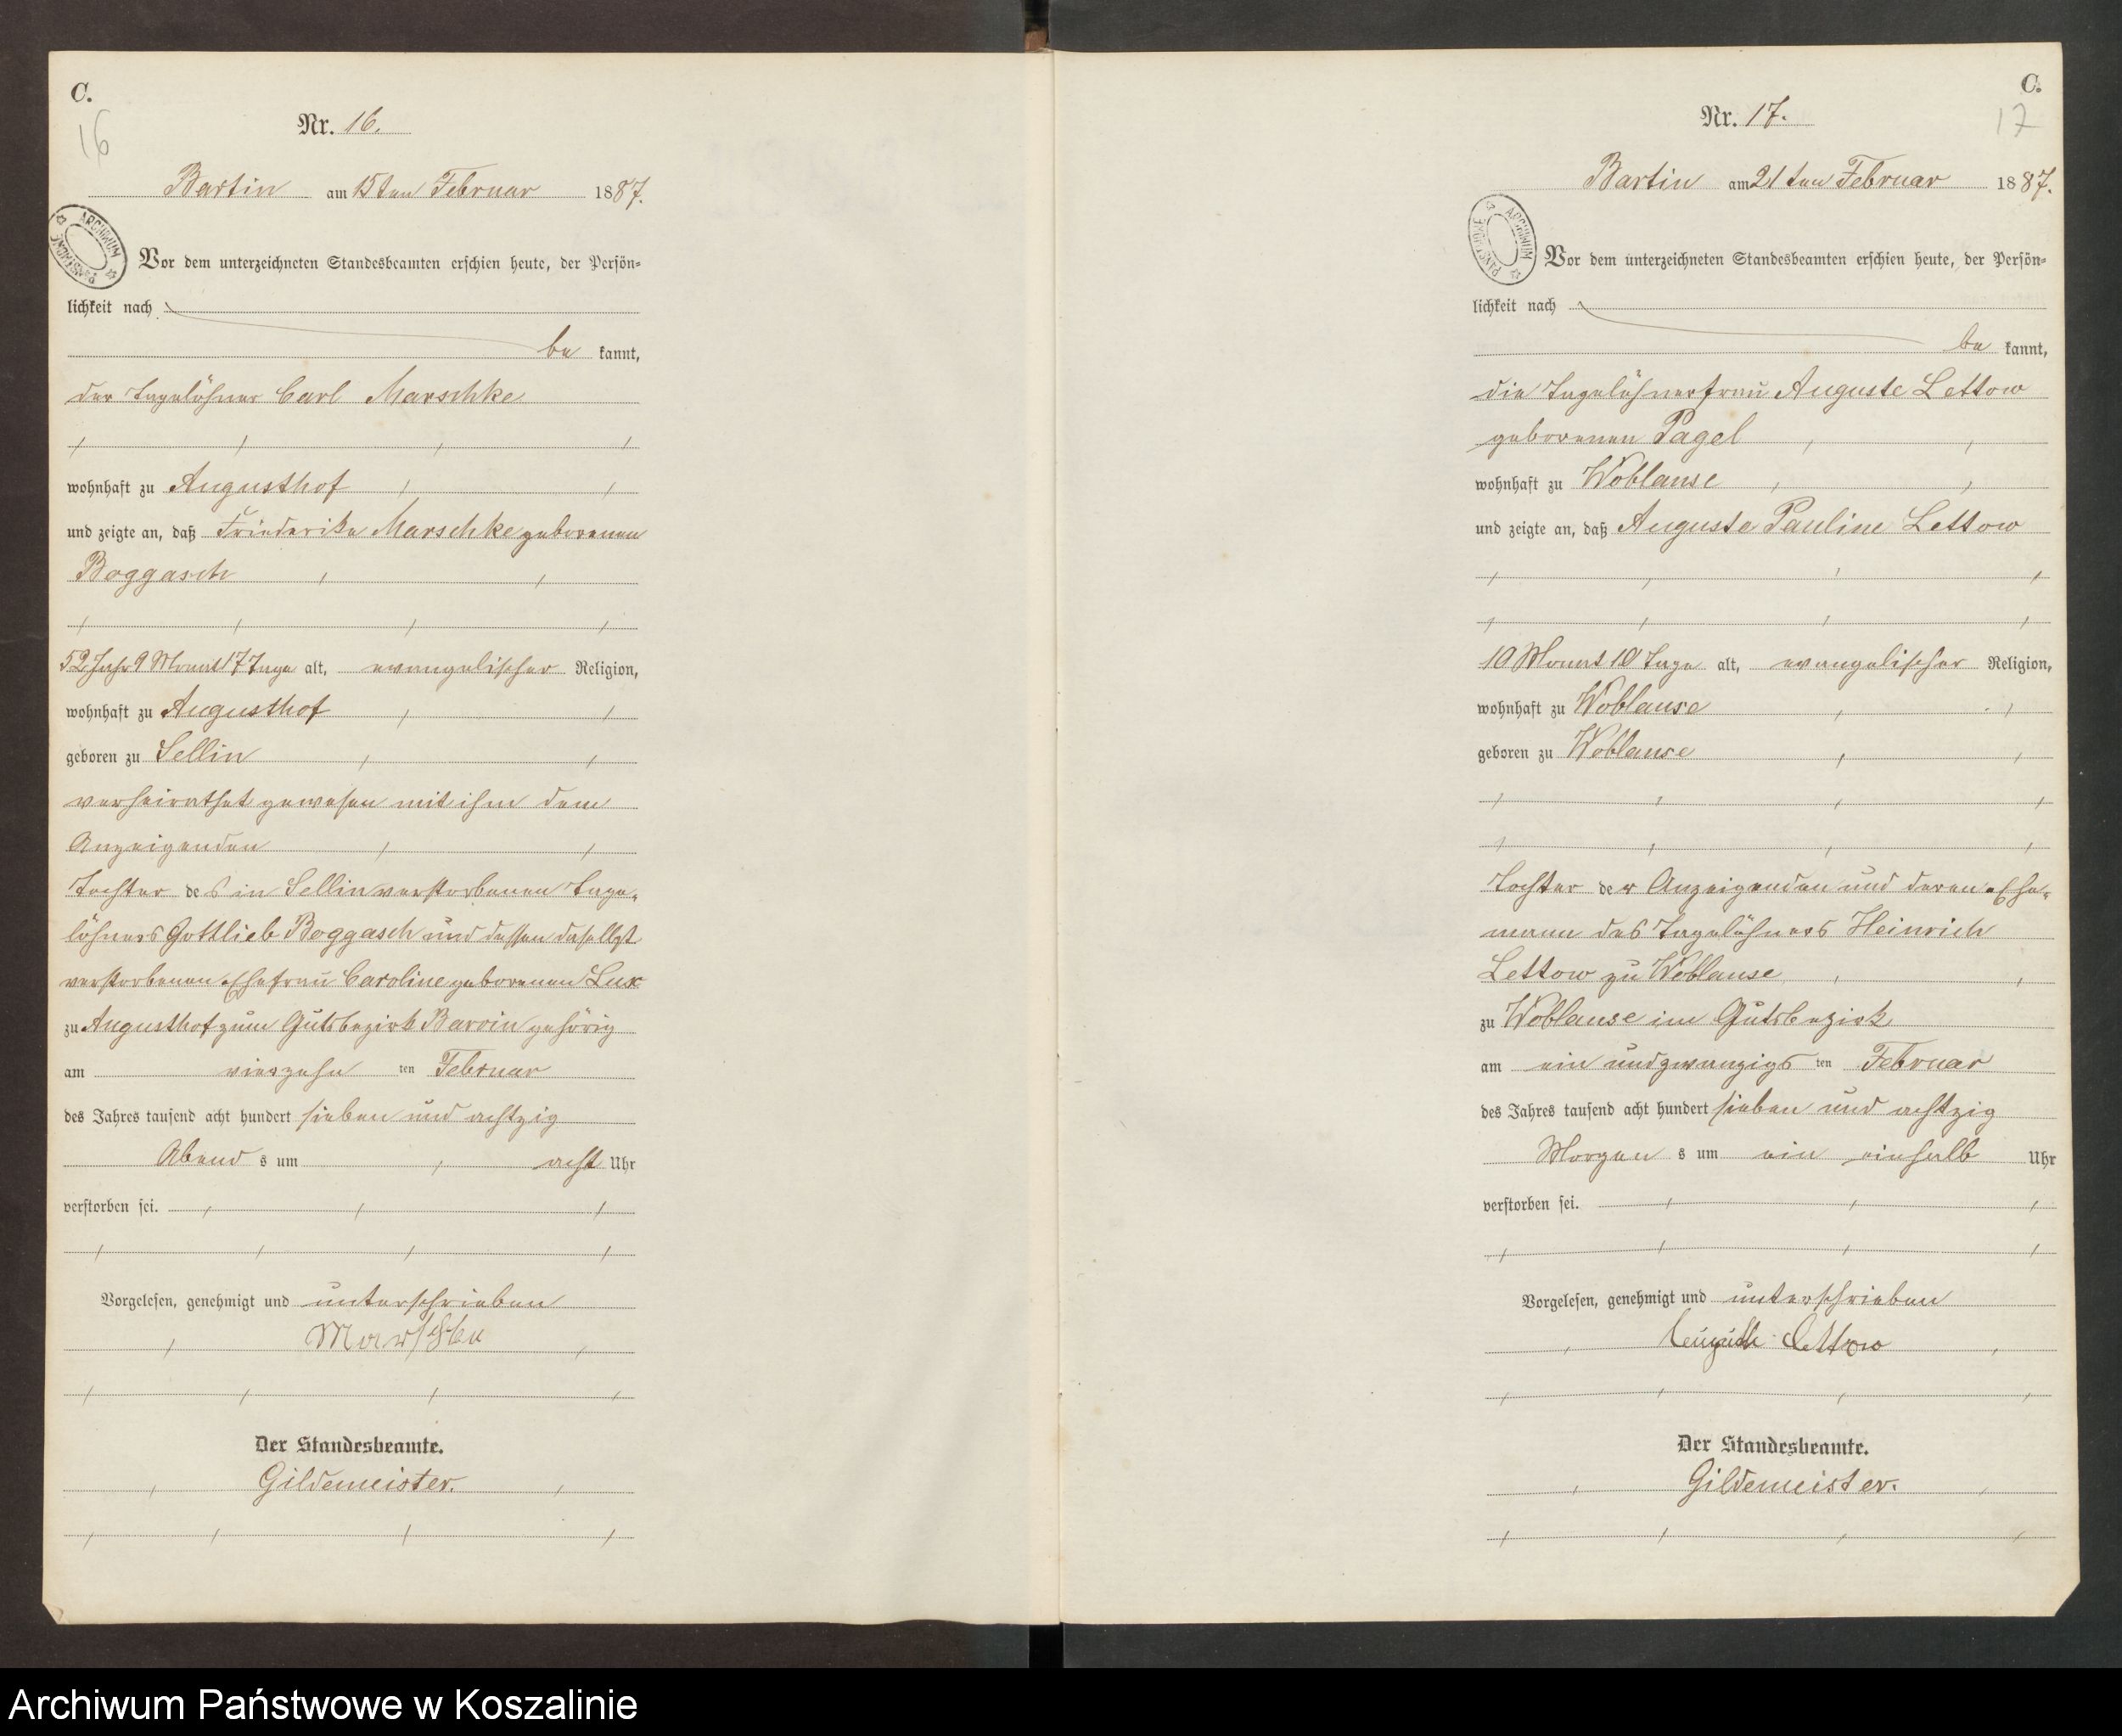 C.
16
Nr. 16.
Bartin am 15ten Februar 1887.
ARCHIWUM PAŃSTWOWE
Vor dem unterzeichneten Standesbeamten erschien heute, der Persön-
lichkeit nach
be kannt,
der Tagelöhner Carl Marschke
wohnhaft zu Augusthof
und zeigte an, daß Friederike Marschke geborenen
Boggasch
52 Jahr 9 Monat 17 Tage alt, evangelischer Religion,
wohnhaft zu Augusthof
geboren zu Sellin
verheirathet gewesen mit ihm dem
Anzeigenden
Tochter des in Sellin verstorbenen Tage-
löhners Gottlieb Boggasch und dessen daselbst
verstorbenen Ehefrau Caroline geborenen Lux
zu Augusthof zum Gutsbezirk Barvin gehörig
am vierzehn ten Februar
des Jahres tausend acht hundert sieben und achtzig
Abend s um acht Uhr
verstorben sei.
Vorgelesen, genehmigt und unterschrieben
Marschke
Der Standesbeamte.
Gildemeister.
C.
17
Nr. 17.
Bartin am 21ten Februar 1887.
ARCHIWUM PAŃSTWOWE
Vor dem unterzeichneten Standesbeamten erschien heute, der Persön-
lichkeit nach
be kannt,
die Tagelöhnerfrau Auguste Lettow
geborenen Pagel
wohnhaft zu Woblanse
und zeigte an, daß Auguste Pauline Lettow
10 Monat 10 Tage alt, evangelischer Religion,
wohnhaft zu Woblanse
geboren zu Woblanse
Tochter der Anzeigenden und deren Ehe-
mann des Tagelöhners Heinrich
Lettow zu Woblanse
zu Woblanse im Gutsbezirk
am ein und zwanzigs ten Februar
des Jahres tausend acht hundert sieben und achtzig
Morgen s um ein einhalb Uhr
verstorben sei.
Vorgelesen, genehmigt und unterschrieben
Auguste Lettow
Der Standesbeamte.
Gildemeister.
Archiwum Państwowe w Koszalinie